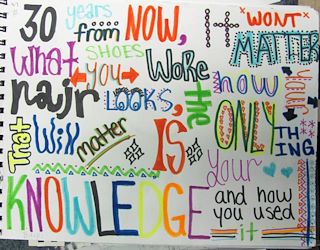 30 years from NOW, It *WONT*
MATTER
What SHOES you WORE how
hair LOOKS, the ONLY THING
That Will matter IS your
KNOWLEDGE and how
you used
it